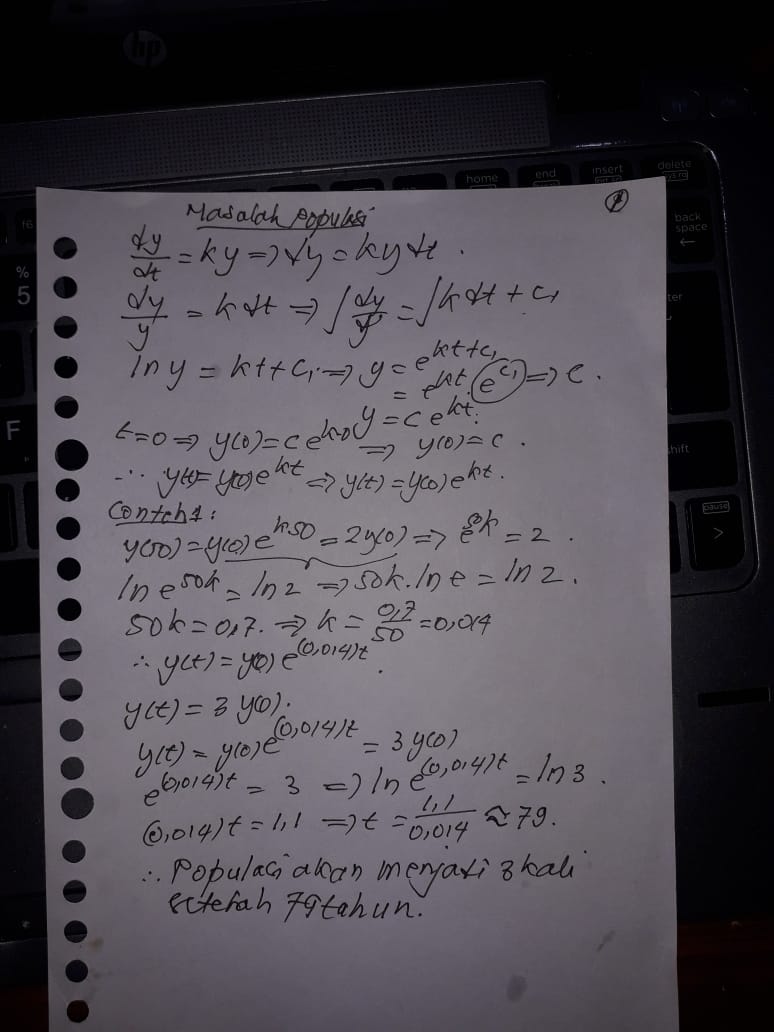 hp
home end insert delete
prt sc sys rq
f6
back space
←
%
5
F
shift
pause
>
Masalah populasi
dy/dt = ky => dy = ky dt.
dy/y = k dt => ∫ dy/y = ∫ k dt + C₁
ln y = kt + C₁ => y = e^(kt+C₁)
= e^kt. e^C₁ => C.
y = c e^kt.
t=0 => y(0) = c e^k.0 => y(0) = c.
∴ y(t) = y(0) e^kt => y(t) = y(0) e^kt.
Contoh 1:
y(50) = y(0) e^k50 = 2y(0) => e^50k = 2.
ln e^50k = ln 2 => 50k. ln e = ln 2.
50k = 0,7. => k = 0,7/50 = 0,014
∴ y(t) = y(0) e^(0,014)t.
y(t) = 3 y(0).
y(t) = y(0) e^(0,014)t = 3 y(0)
e^(0,014)t = 3 => ln e^(0,014)t = ln 3.
(0,014)t = 1,1 => t = 1,1/0,014 ≈ 79.
∴ Populasi akan menjadi 3 kali
setelah 79 tahun.